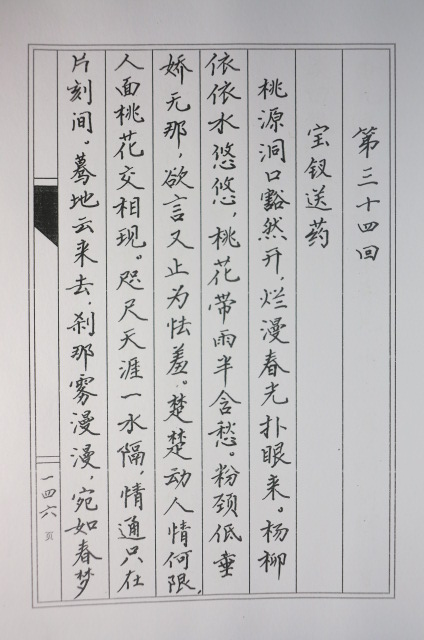 第三十四回
宝钗送药
桃源洞口豁然开，烂漫春光扑眼来。杨柳
依依水悠悠，桃花带雨半含愁。粉颈低垂
娇无那，欲言又止为怯羞。楚楚动人情何限，
人面桃花交相现。咫尺天涯一水隔，情通只在
片刻间。蓦地云来去，刹那雾漫漫，宛如春梦
一四六页